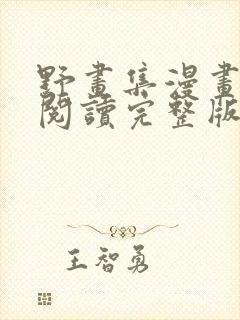 野畫集漫畫
閱讀完整版
王智勇